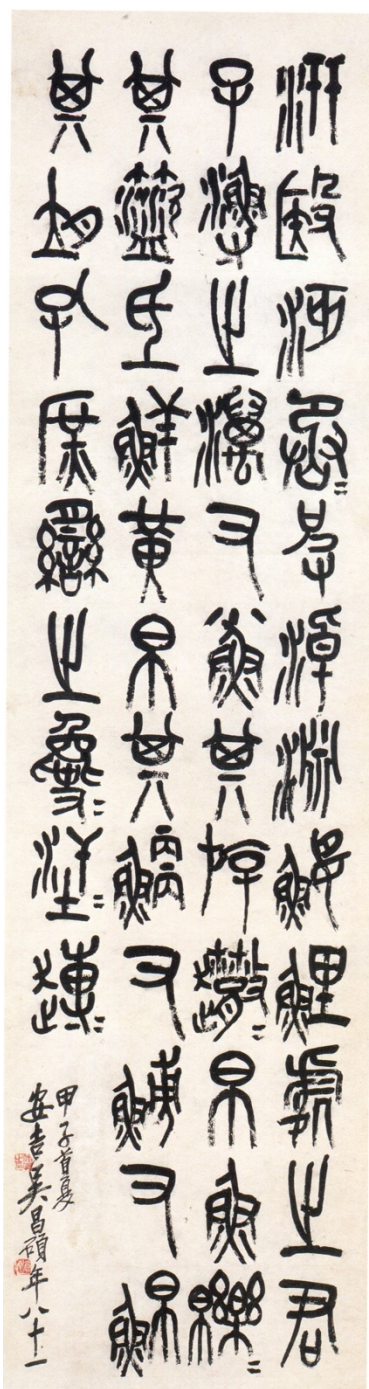 汧殹沔烝皮淖淵鰋鯉處之君
子漁之澫又小魚其斿趣帛魚皪
其盜氐鮮黃帛其鯾又鰟又鮊
其孔庶臠之汗
甲子首夏
安吉吳昌碩年八十一